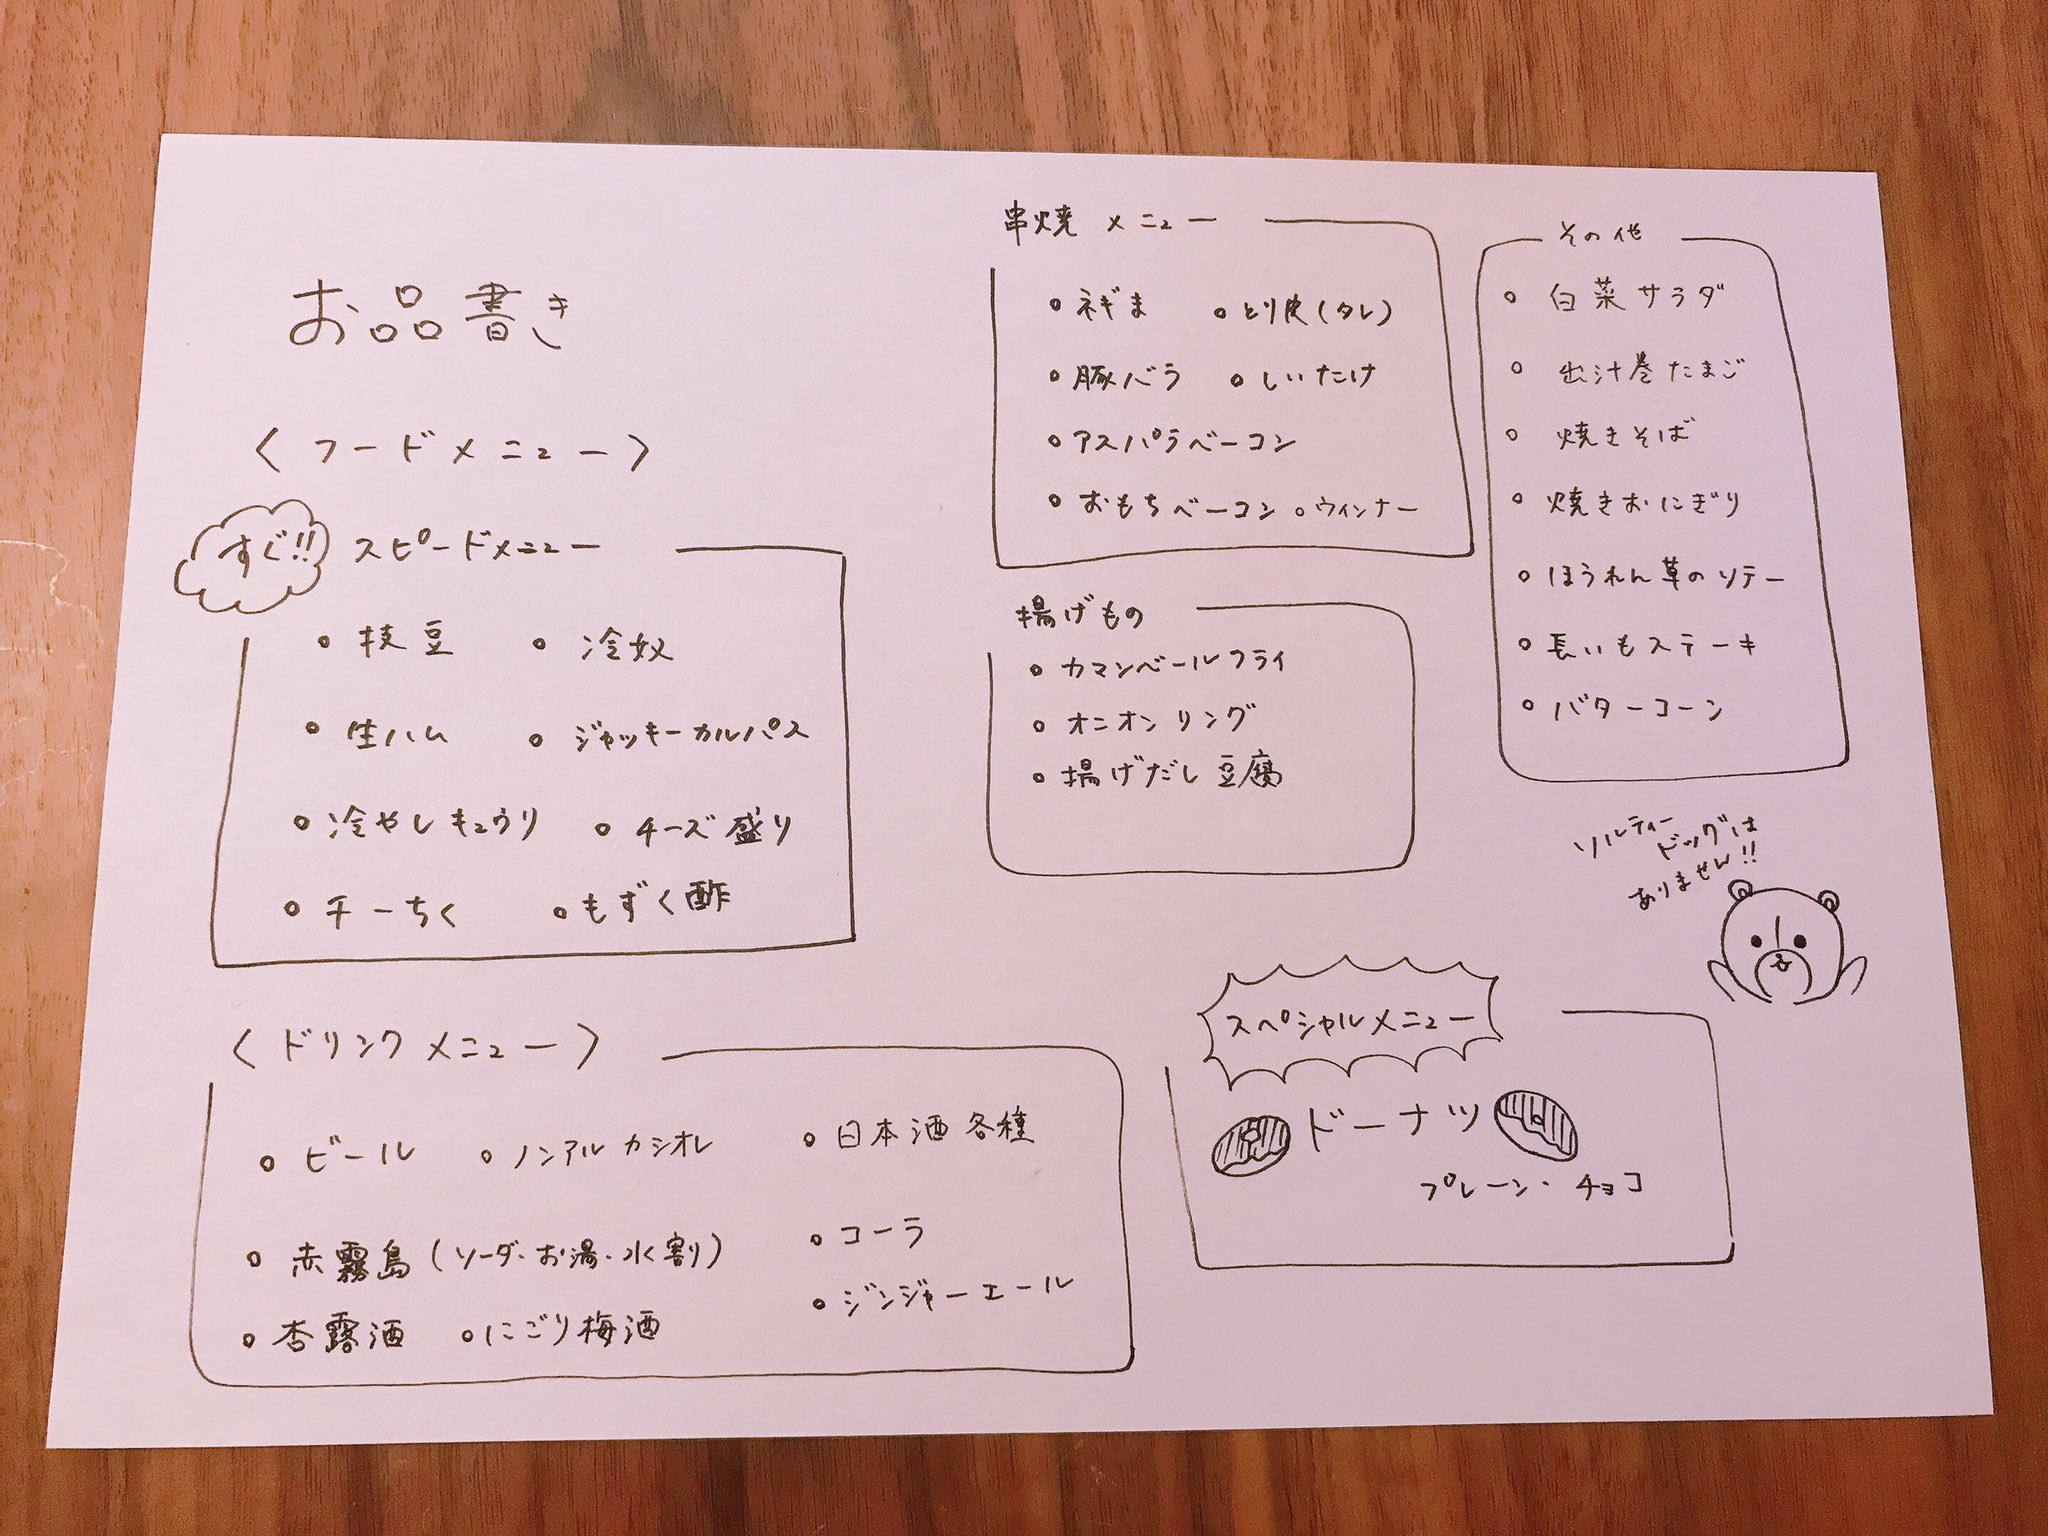 お品書き
〈フードメニュー〉
すぐ!! スピードメニュー
○枝豆 ○冷奴
○生ハム ○ジャッキーカルパス
○冷やしキュウリ ○チーズ盛り
○チーちく ○もずく酢
〈ドリンクメニュー〉
○ビール ○ノンアルカシオレ ○日本酒各種
○赤霧島(ソーダ・お湯・水割り) ○コーラ
○杏露酒 ○にごり梅酒 ○ジンジャーエール
串焼メニュー
○ネギま ○とり皮(タレ)
○豚バラ ○しいたけ
○アスパラベーコン
○おもちベーコン ○ウィンナー
揚げもの
○カマンベールフライ
○オニオンリング
○揚げだし豆腐
その他
○白菜サラダ
○出汁巻たまご
○焼きそば
○焼きおにぎり
○ほうれん草のソテー
○長いもステーキ
○バターコーン
ソルティー
ドッグは
ありません!!
スペシャルメニュー
ドーナツ
プレーン・チョコ